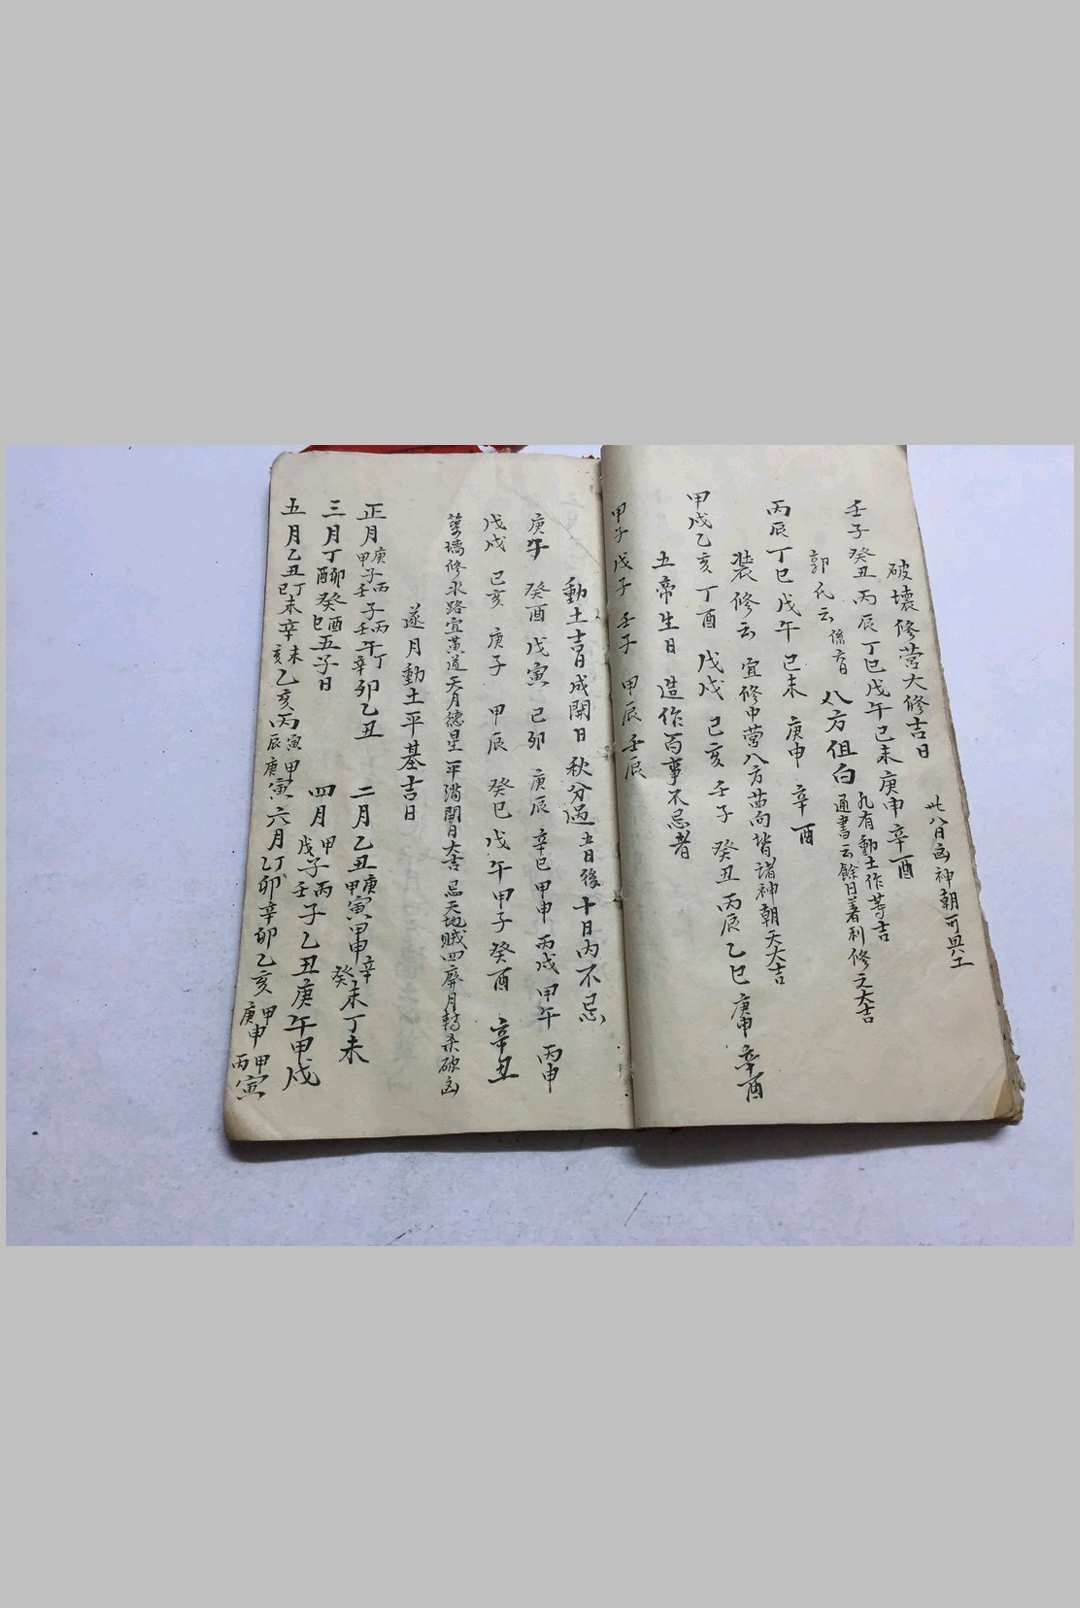 破壞修營大修吉日
此八日凶神朝可興工
壬子癸丑丙辰丁巳戊午己未庚申辛酉
郭氏云 八方俱白
凡有動土作等吉
通書云餘日著利修之大吉
丙辰丁巳戊午己未庚申辛酉
裝修云宜修中營八方苗向皆諸神朝天大吉
甲戌乙亥丁酉戊戌己亥壬子癸丑丙辰乙巳庚申辛酉
五帝生日造作百事不忌者
甲子戊子壬子甲辰壬辰
動土吉日成開日秋分過吉日後十日內不忌
庚午癸酉戊寅己卯庚辰辛巳甲申丙戌甲午丙申
戊戌己亥庚子甲辰癸巳戊午甲子癸酉辛丑
修水路宜黃道天月德星平滿開日大吉忌天地賊四廢月轉杀破凶
逐月動土平基吉日
正月甲子庚子壬子丙子壬午丙午辛卯丁卯乙丑
二月乙丑甲寅庚寅甲申辛未癸未丁未
三月丁卯丁酉癸酉癸巳五子日
四月戊子甲子壬子丙子乙丑庚午甲戌
五月乙丑己未丁未辛未辛亥乙亥丙辰丙寅庚寅甲寅
六月乙卯丁卯辛卯乙亥庚申甲申丙寅甲寅